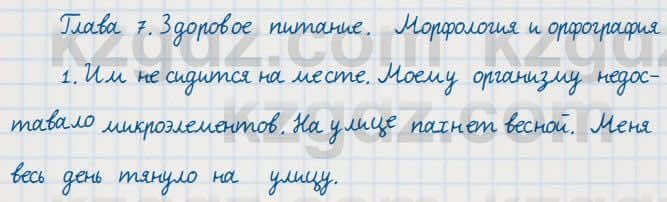 Глава 7. Здоровое питание. Морфология и орфография
1. Им не сидится на месте. Моему организму недос-
тавало микроэлементов. На улице пахнет весной. Меня
весь день тянуло на улицу.